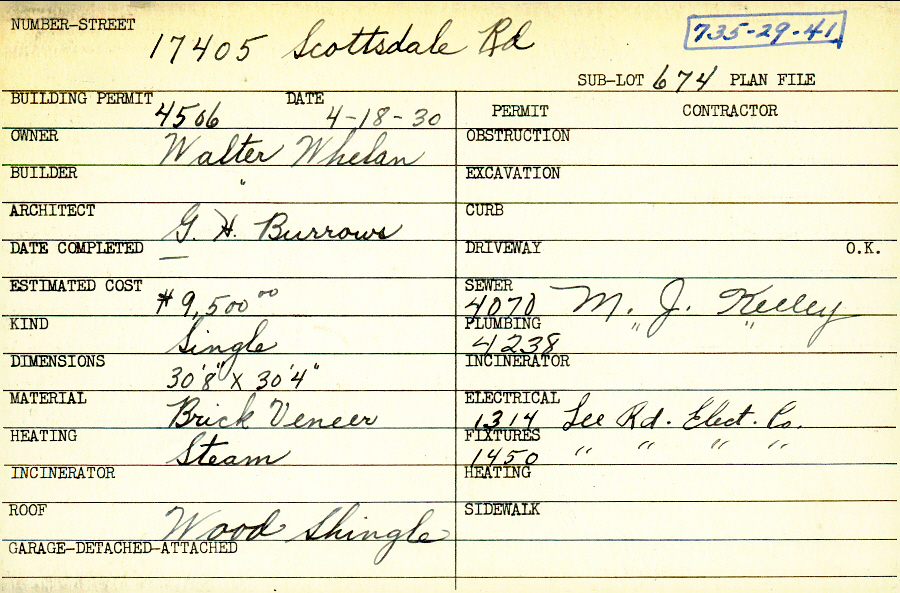 NUMBER-STREET 17405 Scottsdale Rd 735-29-41
SUB-LOT 674 PLAN FILE
BUILDING PERMIT 4506 DATE 4-18-30
OWNER Walter Whelan
BUILDER "
ARCHITECT G. H. Burrows
DATE COMPLETED —
ESTIMATED COST $9,500 00
KIND Single
DIMENSIONS 30'8" X 30'4"
MATERIAL Brick Veneer
HEATING Steam
INCINERATOR
ROOF Wood Shingle
GARAGE-DETACHED-ATTACHED
PERMIT CONTRACTOR
OBSTRUCTION
EXCAVATION
CURB
DRIVEWAY O.K.
SEWER 4070 M. J. Kelley
PLUMBING 4238 " "
INCINERATOR
ELECTRICAL 1314 Lee Rd. Elect. Co.
FIXTURES 1450 " " " "
HEATING
SIDEWALK